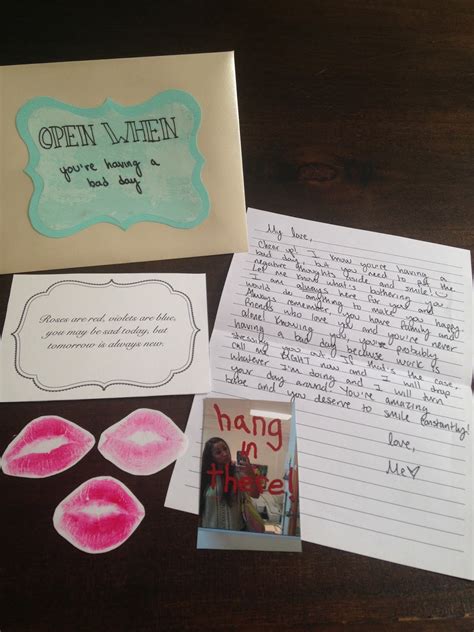 OPEN WHEN
you're having a
bad day
Roses are red, violets are blue,
you may be sad today, but
tomorrow is always new.
hang
in
there!
My love,
Cheer up! I know you're having a
bad day, but you need to put the
negative thoughts aside and smile!
Let me know what's bothering you
I am always here for you and
would do anything to make you happy
Always remember, you have family and
friends who love you and you're never
alone! Knowing you, you're probably
having a bad day because work is
stressing you out. If that's the case,
call me right now and I will drop
whatever I'm doing and I will turn
your day around. You're amazing
babe and you deserve to smile constantly!
love,
Me